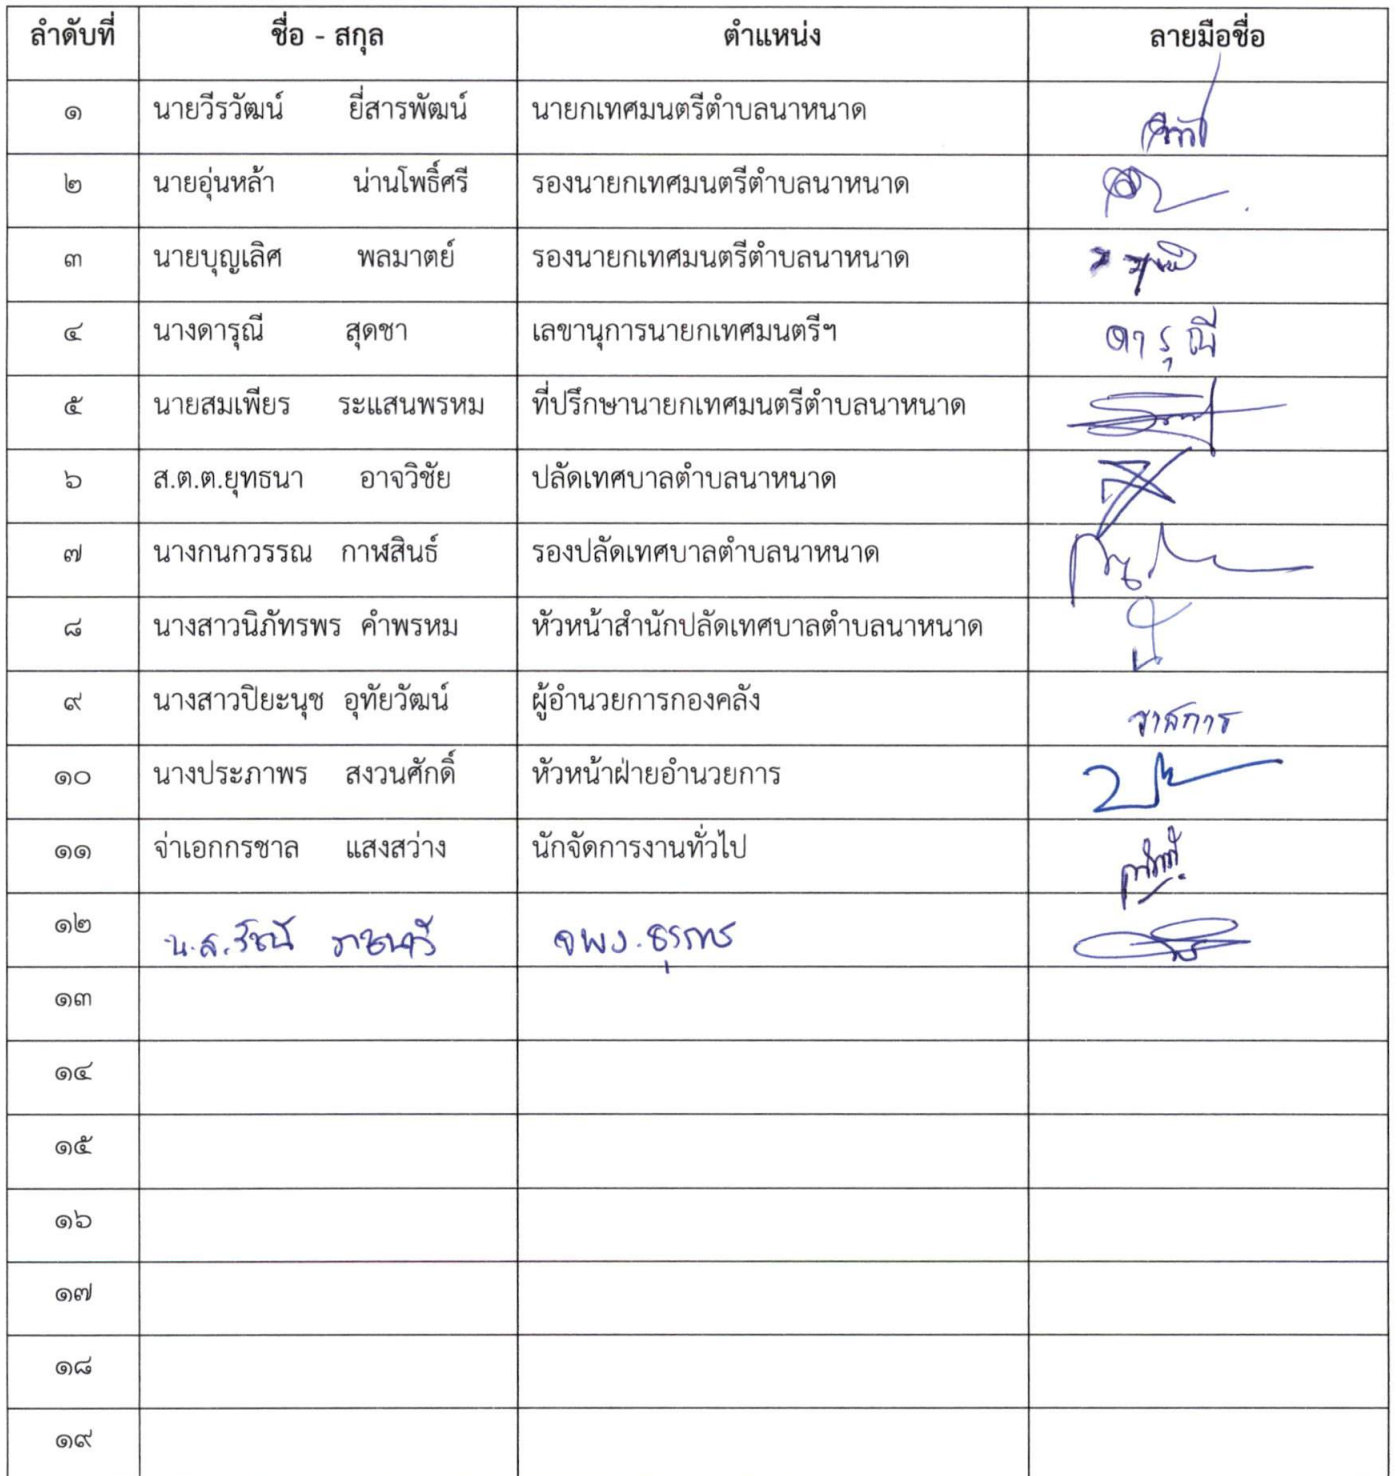 ลำดับที่ ชื่อ - สกุล ตำแหน่ง ลายมือชื่อ
๑ นายวีรวัฒน์ ยี่สารพัฒน์ นายกเทศมนตรีตำบลนาหนาด
๒ นายอุ่นหล้า น่านโพธิ์ศรี รองนายกเทศมนตรีตำบลนาหนาด
๓ นายบุญเลิศ พลมาตย์ รองนายกเทศมนตรีตำบลนาหนาด
๔ นางดารุณี สุดชา เลขานุการนายกเทศมนตรีฯ ดารุณี
๕ นายสมเพียร ระแสนพรหม ที่ปรึกษานายกเทศมนตรีตำบลนาหนาด
๖ ส.ต.ต.ยุทธนา อาจวิชัย ปลัดเทศบาลตำบลนาหนาด
๗ นางกนกวรรณ กาฬสินธ์ รองปลัดเทศบาลตำบลนาหนาด
๘ นางสาวนิภัทรพร คำพรหม หัวหน้าสำนักปลัดเทศบาลตำบลนาหนาด
๙ นางสาวปิยะนุช อุทัยวัฒน์ ผู้อำนวยการกองคลัง
๑๐ นางประภาพร สงวนศักดิ์ หัวหน้าฝ่ายอำนวยการ
๑๑ จ่าเอกกรชาล แสงสว่าง นักจัดการงานทั่วไป
๑๒ น.ส.รัชนี จพง.ธุรการ
๑๓
๑๔
๑๕
๑๖
๑๗
๑๘
๑๙